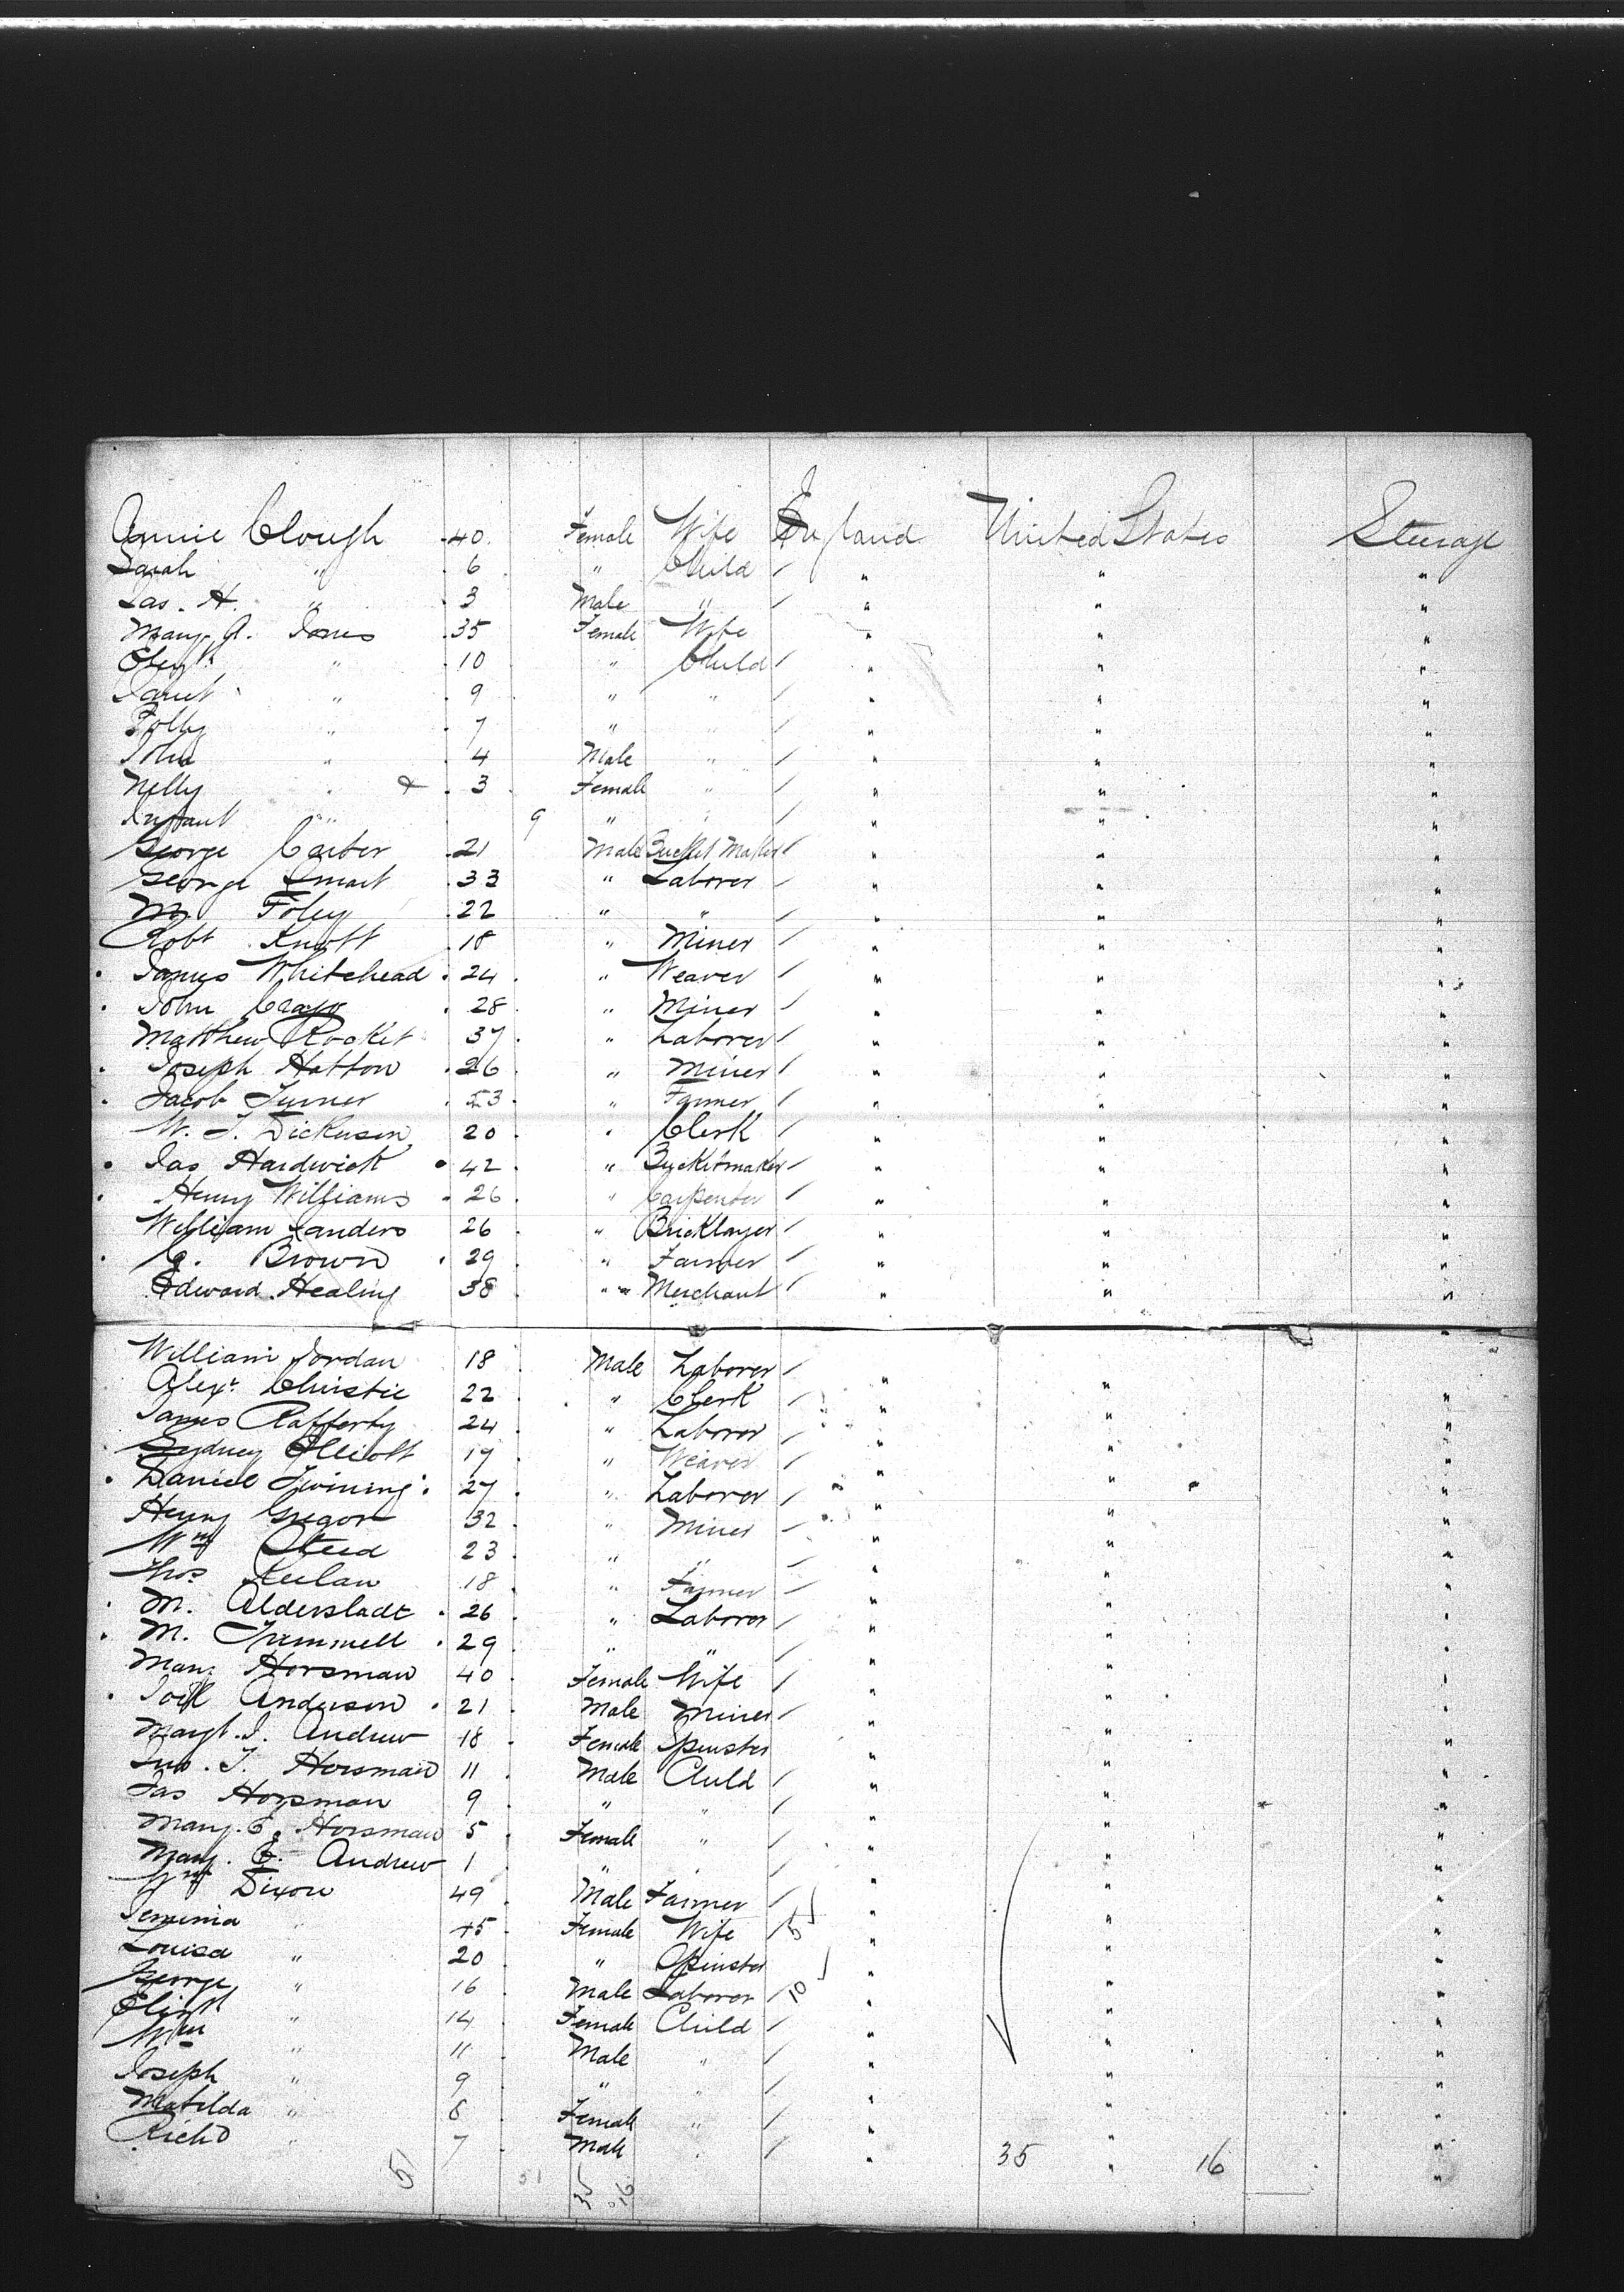 Annie Clough 40 Female Wife England United States Steerage
Sarah " 6 " Child " " "
Jas. H. " 3 Male " " " "
Mary A. Jones 35 Female Wife " " "
Elizth " 10 " Child " " "
Janet " 9 " " " " "
Polly " 7 " " " " "
John " 4 Male " " " "
Nelly " 3 Female " " " "
Infant " 9 " " " " "
George Carter 21 Male Bucket Maker " " "
George Smart 33 " Laborer " " "
M. Foley 22 " " " " "
Robt Knott 18 " Miner " " "
James Whitehead 24 " Weaver " " "
John 28 " Miner " " "
Matthew Rocket 37 " Laborer " " "
Joseph Hatton 26 " Miner " " "
Jacob Turner 53 " Farmer " " "
W. J. Dickenson 20 " Clerk " " "
Jas Hardwick 42 " Bucketmaker " " "
Henry Williams 26 " Carpenter " " "
William Sanders 26 " Bricklayer " " "
G. Brown 29 " Farmer " " "
Edward Healing 38 " Merchant " " "
William Jordan 18 Male Laborer " " "
Alexr. Christie 22 " Clerk " " "
James Rafferty 24 " Laborer " " "
Sydney Elliott 19 " Weaver " " "
Daniel Twining 27 " Laborer " " "
Henry Gregor 32 " Miner " " "
Wm Steed 23 " " " " "
Thos Keelan 18 " Farmer " " "
M. Alderslade 26 " Laborer " " "
M. Trimmell 29 " " " " "
Mary Horsman 40 Female Wife " " "
Joel Anderson 21 Male Miner " " "
Margt. J. Andrew 18 Female Spinster " " "
Jno. T. Horsman 11 Male Child " " "
Jas Horsman 9 " " " " "
Mary. E. Horsman 5 Female " " " "
Mary. E. Andrew 1 " " " " "
Wm Dixon 49 Male Farmer " " "
Jemima " 45 Female Wife 5 " " "
Louisa " 20 " Spinster " " "
George " 16 Male Laborer 10 " " "
Elizth " 14 Female Child " " "
Wm " 11 Male " " " "
Joseph " 9 " " " " "
Matilda " 8 Female " " " "
Richd " 7 Male " " " "
51 51 35 16 35 16